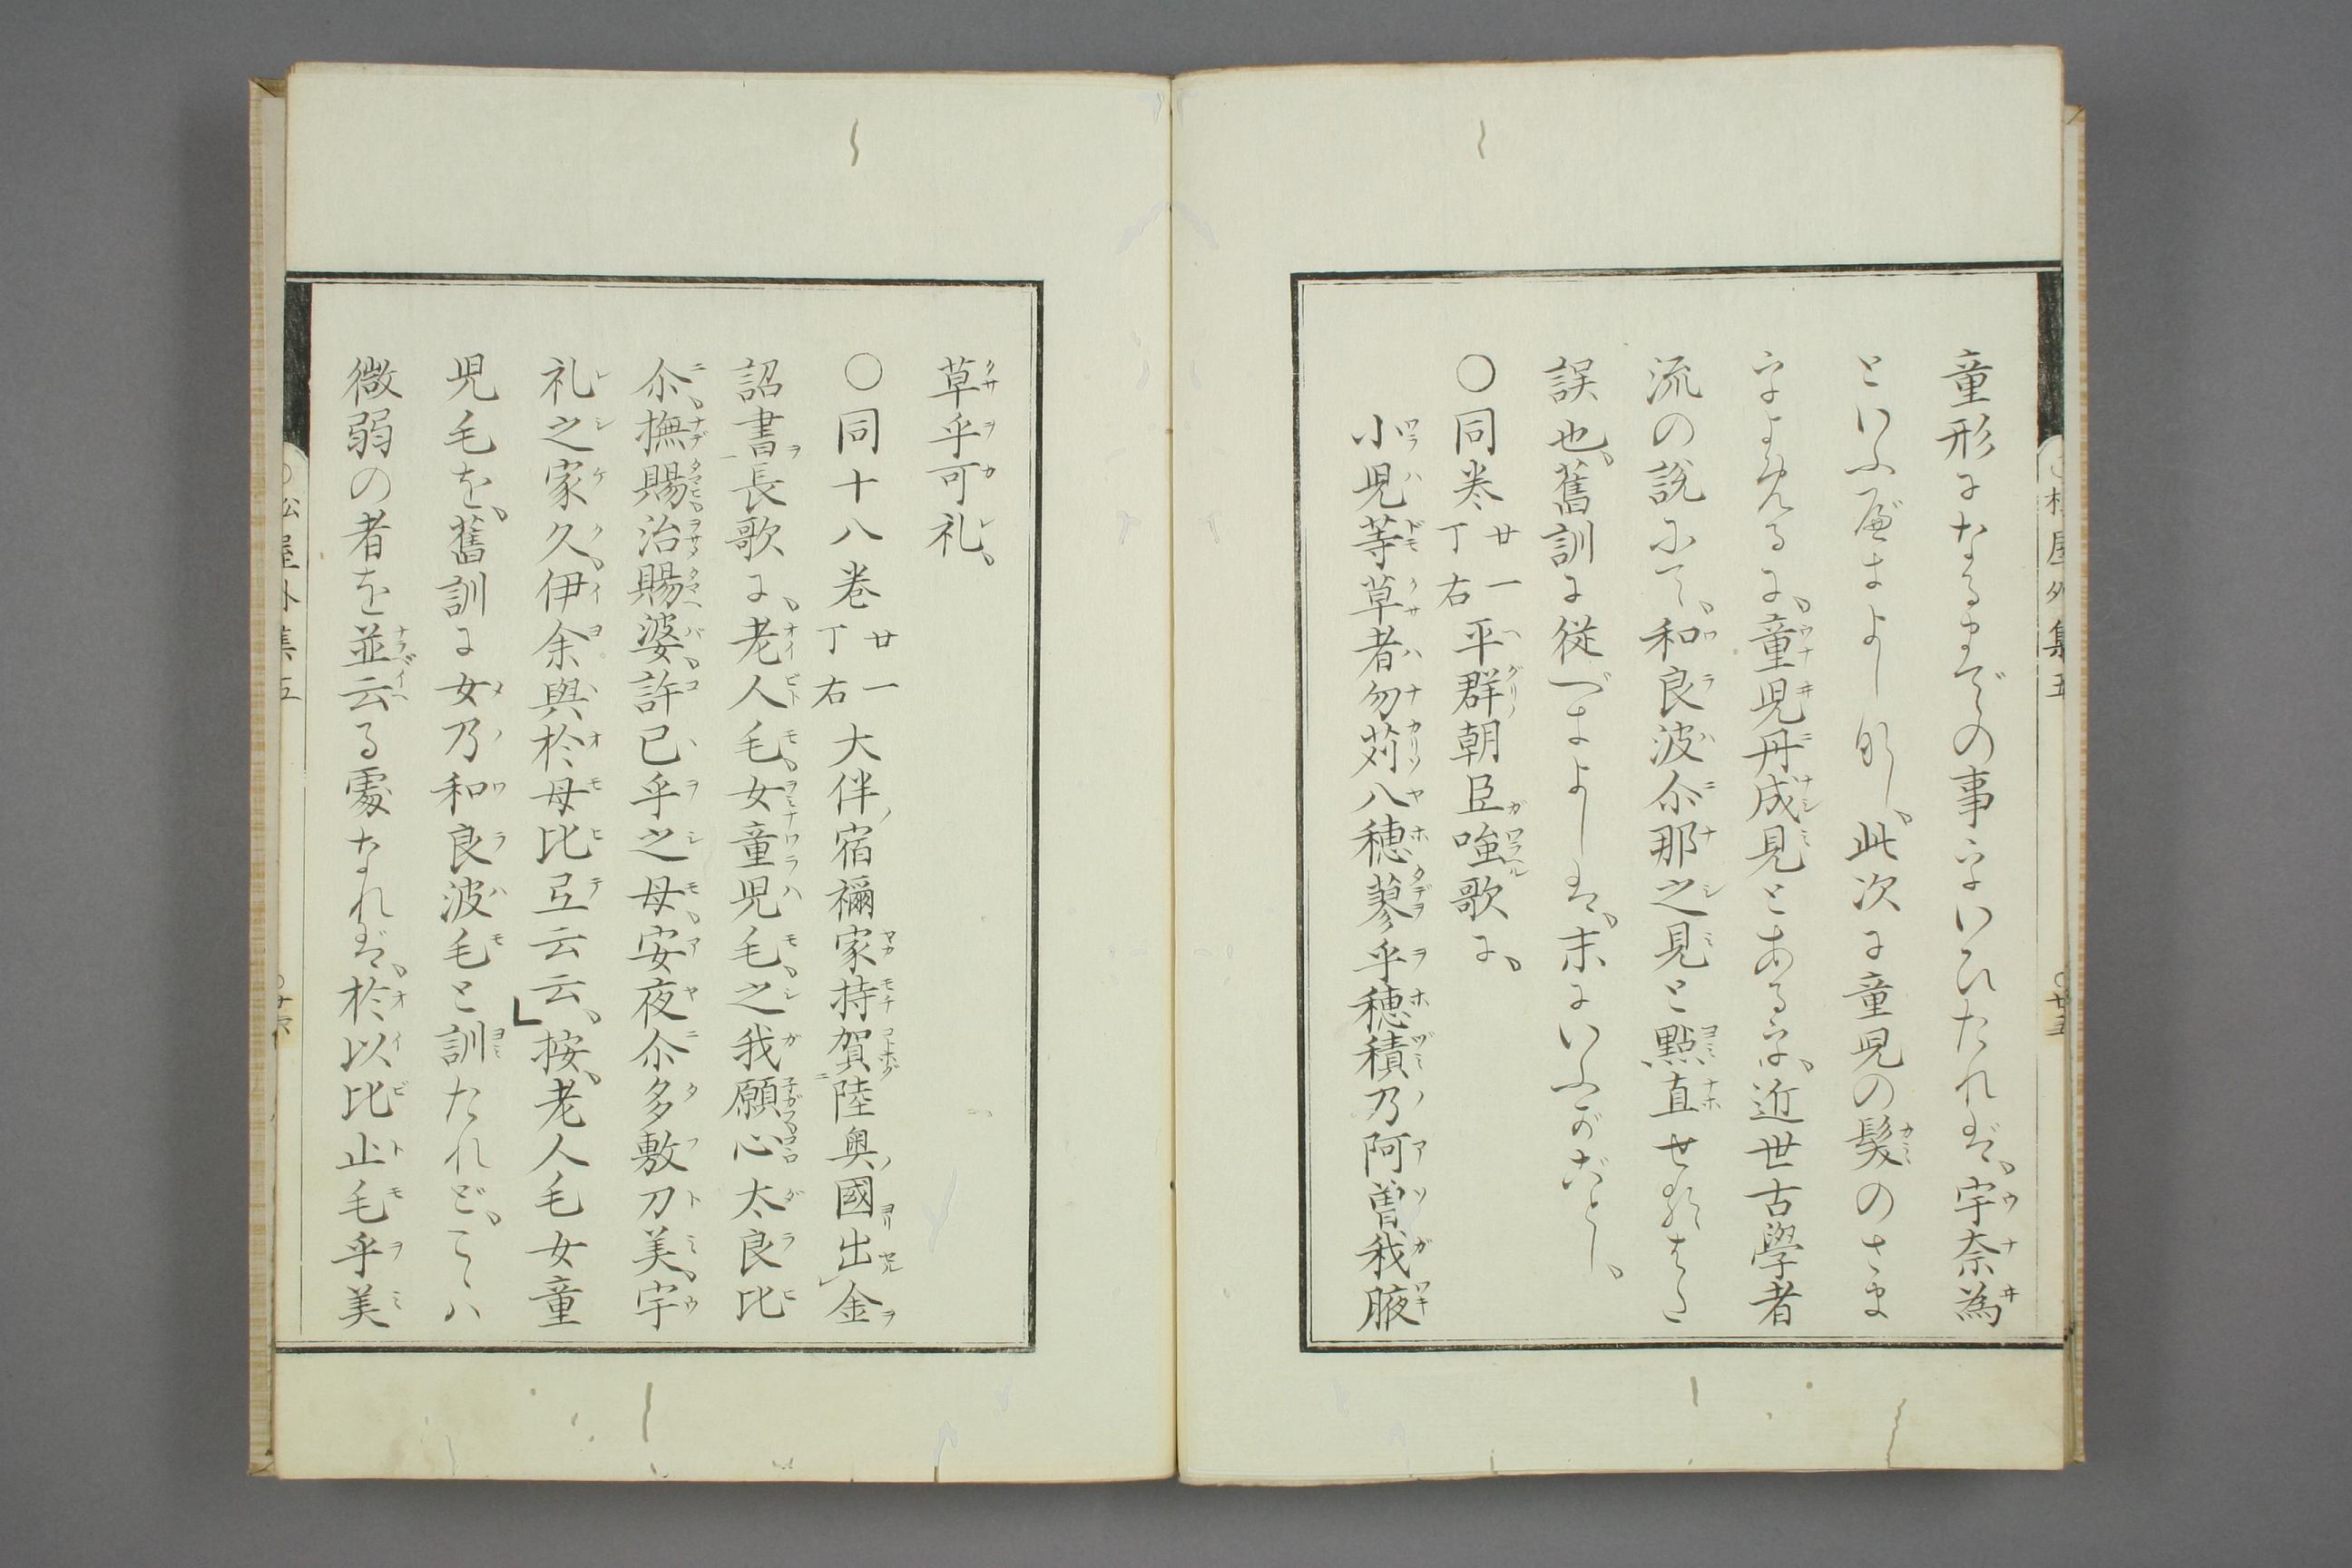 童形になるまでの事にいひたれば、宇奈為
といふべきよしなし、此次に童児の髪のさま
によめるに、童児丹成見とあるに、近世古學者
流の説にて、和良波尒那之見と點直せるはまた
誤也、舊訓に從べきよしは、末にいふがごとし、
〇同巻廿一丁右平群朝臣嗤歌に、
小児等草者勿苅八穂蓼乎穂積乃阿曽我腋
草乎可礼、
〇同十八巻廿一丁右大伴宿禰家持賀陸奥國出金
詔書長歌に、老人毛、女童児毛、之我願心太良比
尒、撫賜治賜婆、許己乎之母、安夜尒多敷刀美、宇
礼之家久、伊余與於母比弖云云、」按、老人毛女童
児毛を、舊訓に女乃和良波毛と訓たれど、こゝハ
微弱の者を並云る處なれば、於以比止毛乎美
松屋外集五
〇廿五